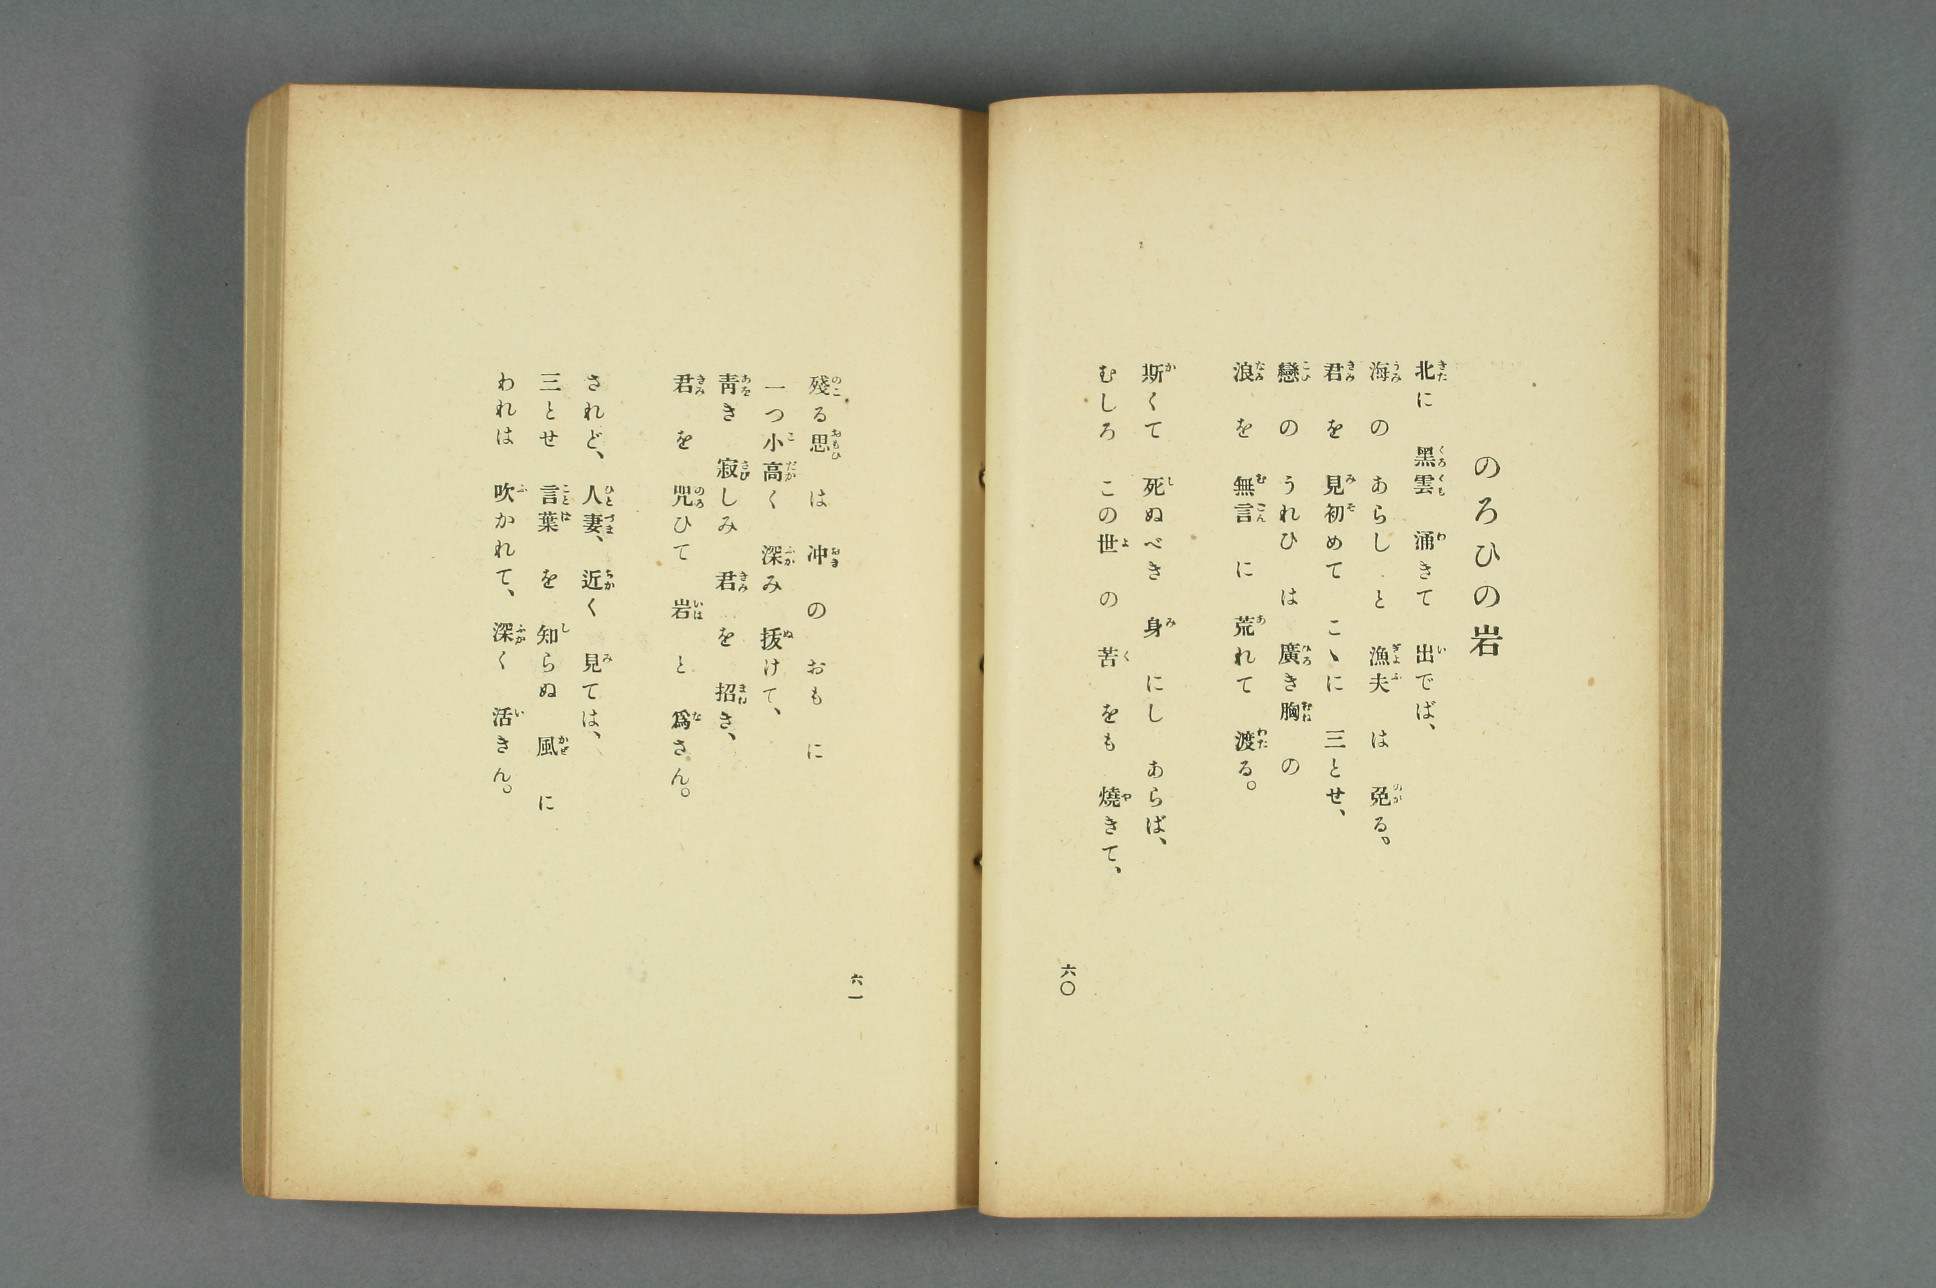 のろひの岩
北に　黑雲　涌きて　出でば、
海　の　あらし　と　漁夫　は　免る。
君　を　見初めて　こゝに　三とせ、
戀　の　うれひ　は　廣き胸　の
浪　を　無言　に　荒れて　渡る。
斯くて　死ぬべき　身　にし　あらば、
むしろ　この世　の　苦　をも　燒きて、
六〇
殘る思　は　冲　の　おも　に
一つ小高く　深み　拔けて、
靑き　寂しみ　君　を　招き、
君　を　咒ひて　岩　と　爲さん。
されど、人妻、近く　見ては、
三とせ　言葉　を　知らぬ　風　に
われは　吹かれて、深く　活きん。
六一